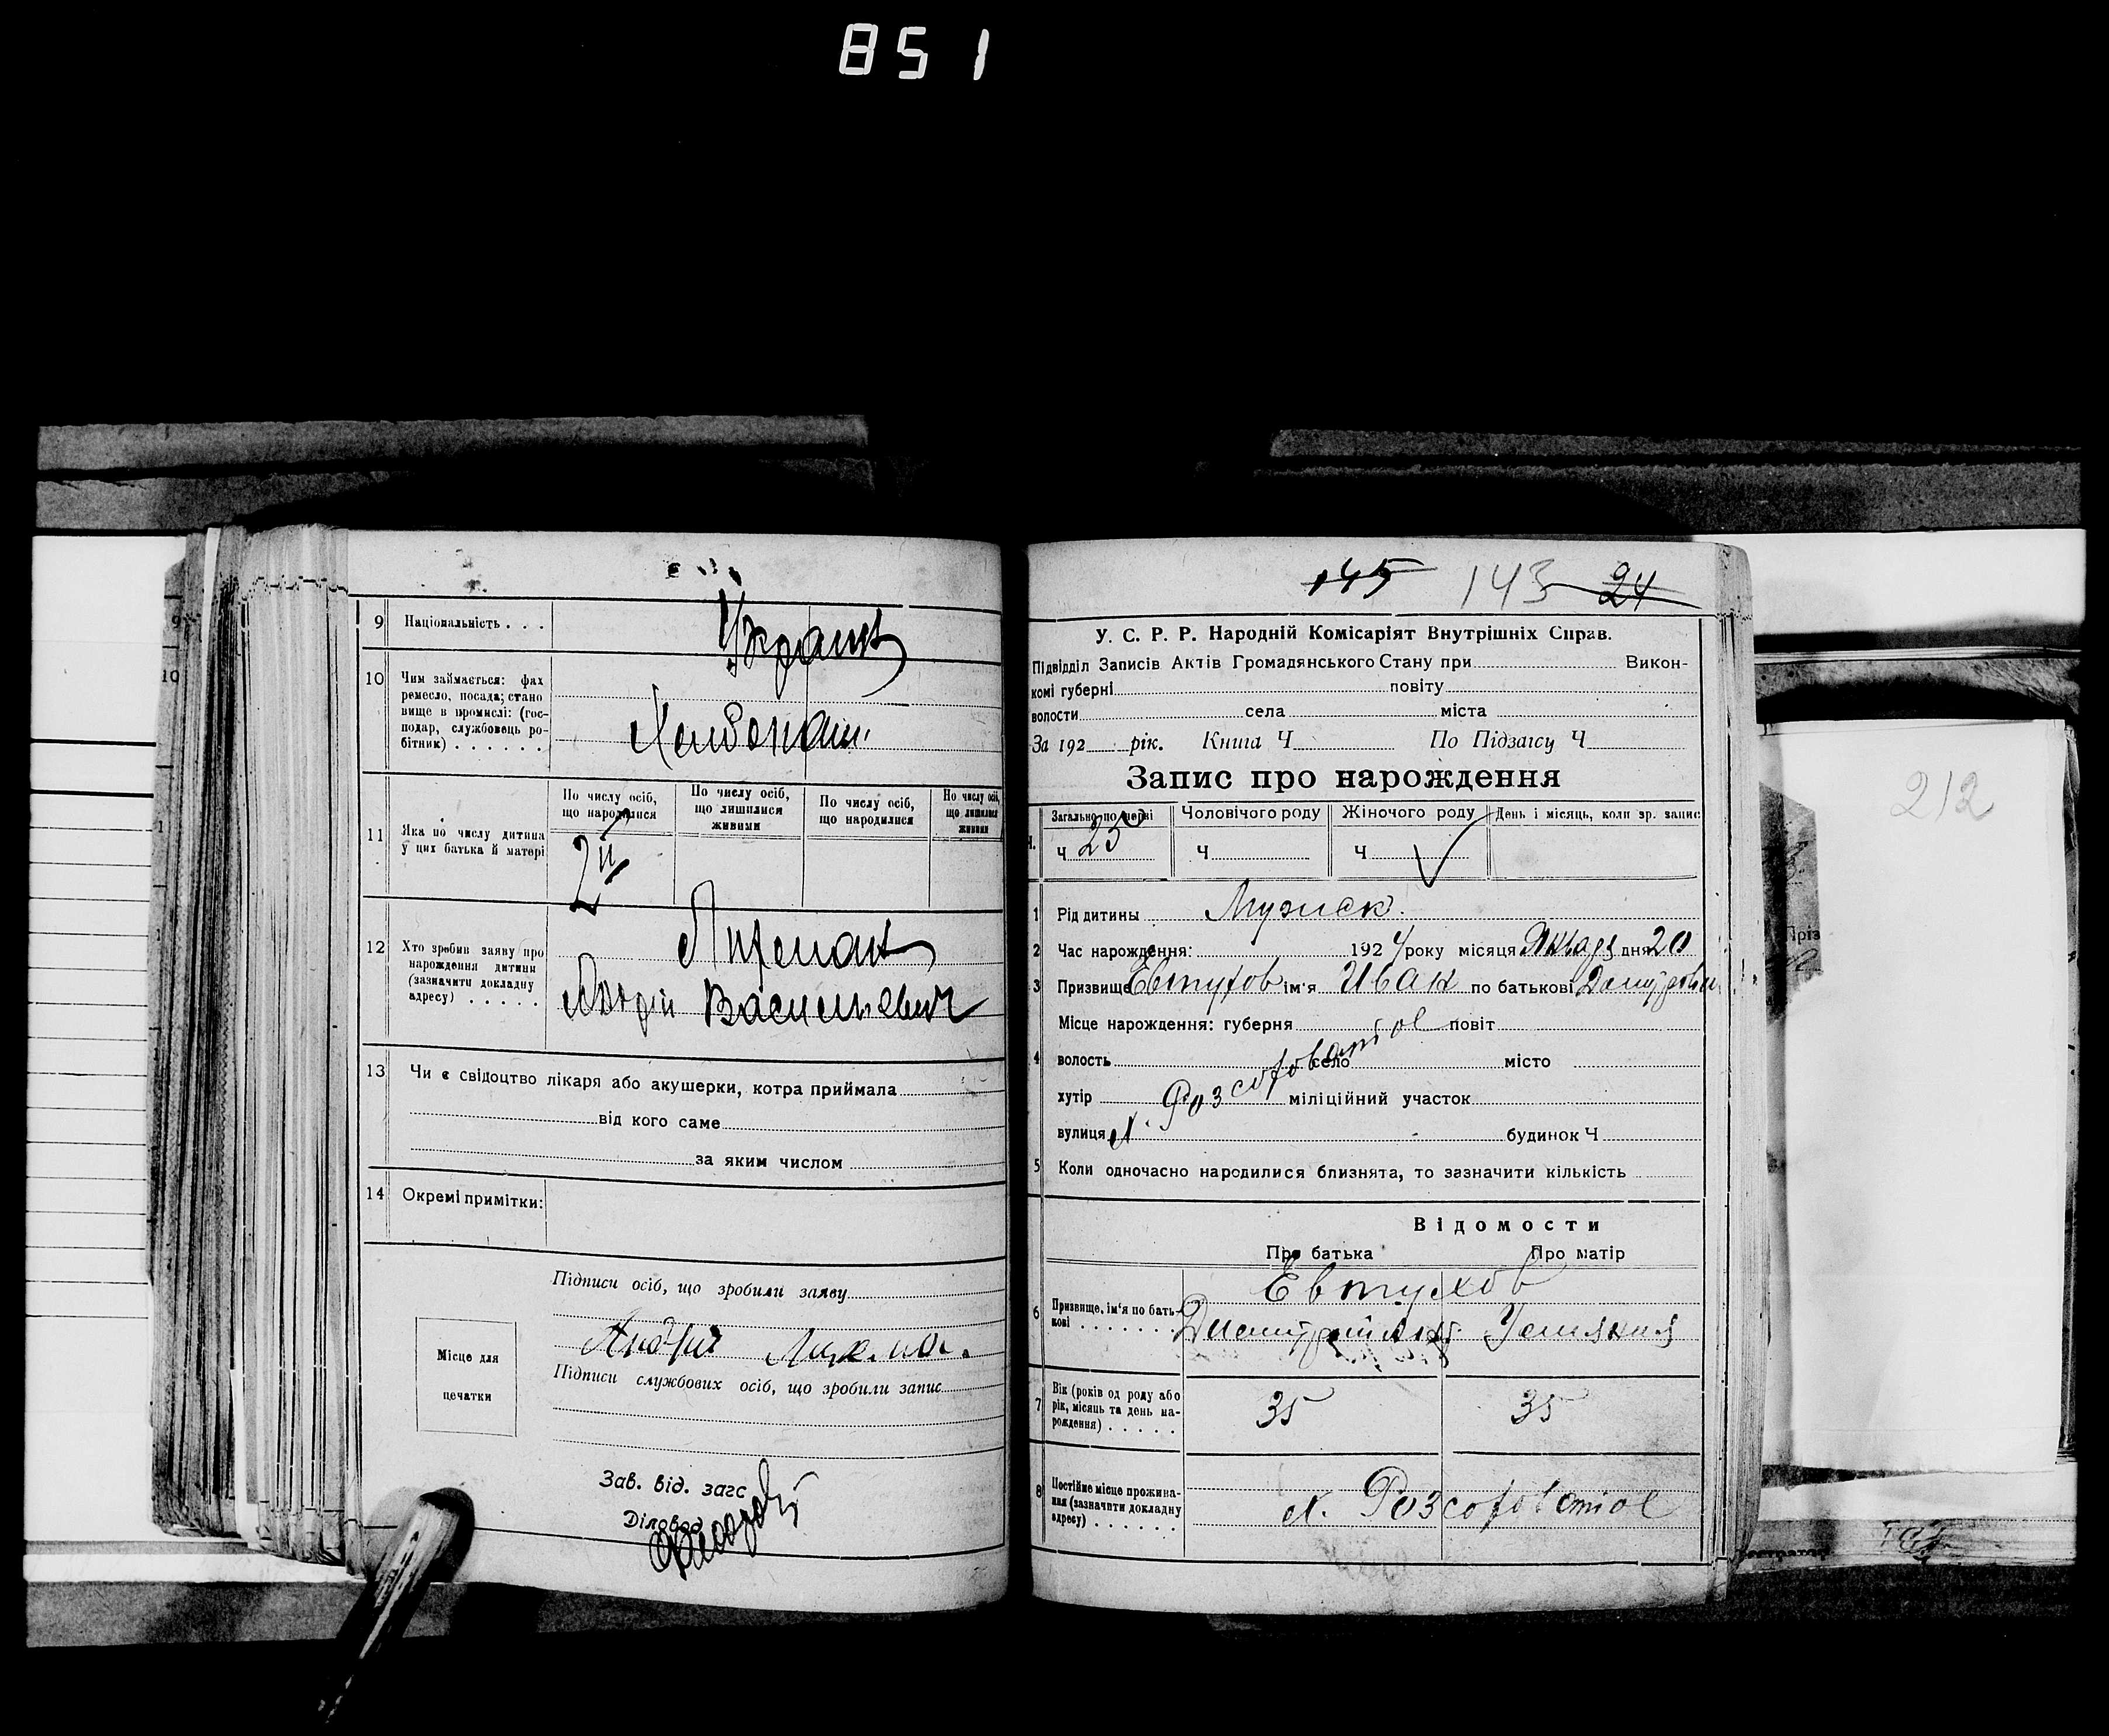 851
9 Національність . . .
Украин
10 Чим займається: фах
ремесло, посада; стано
вище в промислі: (гос-
подар, службовець ро-
бітник) . . . . . .
11 Яка по числу дитина
у цих батька й матері
По числу осіб,
що народилися
По числу осіб,
що лишилися
живими
По числу осіб,
що народилися
По числу осіб,
що лишилися
живими
2й
12 Хто зробив заяву про
нарождення дитини
(зазначити докладну
адресу) . . . . .
Андрій Васильевич
13 Чи є свідоцтво лікаря або акушерки, котра приймала
від кого саме
за яким числом
14 Окремі примітки:
Підписи осіб, що зробили заяву
Андрій
Місце для
печатки
Підписи службових осіб, що зробили запис
Зав. від. загс
Діловод
145 143 24
У. С. Р. Р. Народній Комісаріят Внутрішніх Справ.
Підвідділ Записів Актів Громадянського Стану при Викон-
комі губерні повіту
волости села міста
За 192 рік. Книга Ч По Підзагсу Ч
Запис про нарождення
Загально по черзі
Ч 25
Чоловічого роду
Ч
Жіночого роду
Ч
День і місяць, коли зр. запис
1 Рід дитины Мужеск.
2 Час нарождення: 1924 року місяця Января дня 20
3 Призвище Евтухов ім'я Иван по батькові
Місце нарождення: губерня повіт
4 волость село місто
хутір міліційний участок
вулиця будинок Ч
5 Коли одночасно народилися близнята, то зазначити кількість
Відомости
Про батька Про матір
6 Призвище, ім'я по бать-
кові . . . . . . .
Евтухов
7 Вік (років од роду або
рік, місяць та день на-
рождення) . . . . .
35 35
8 Постійне місце прожива-
ння (зазначити докладну
адресу) . . . . . .
212